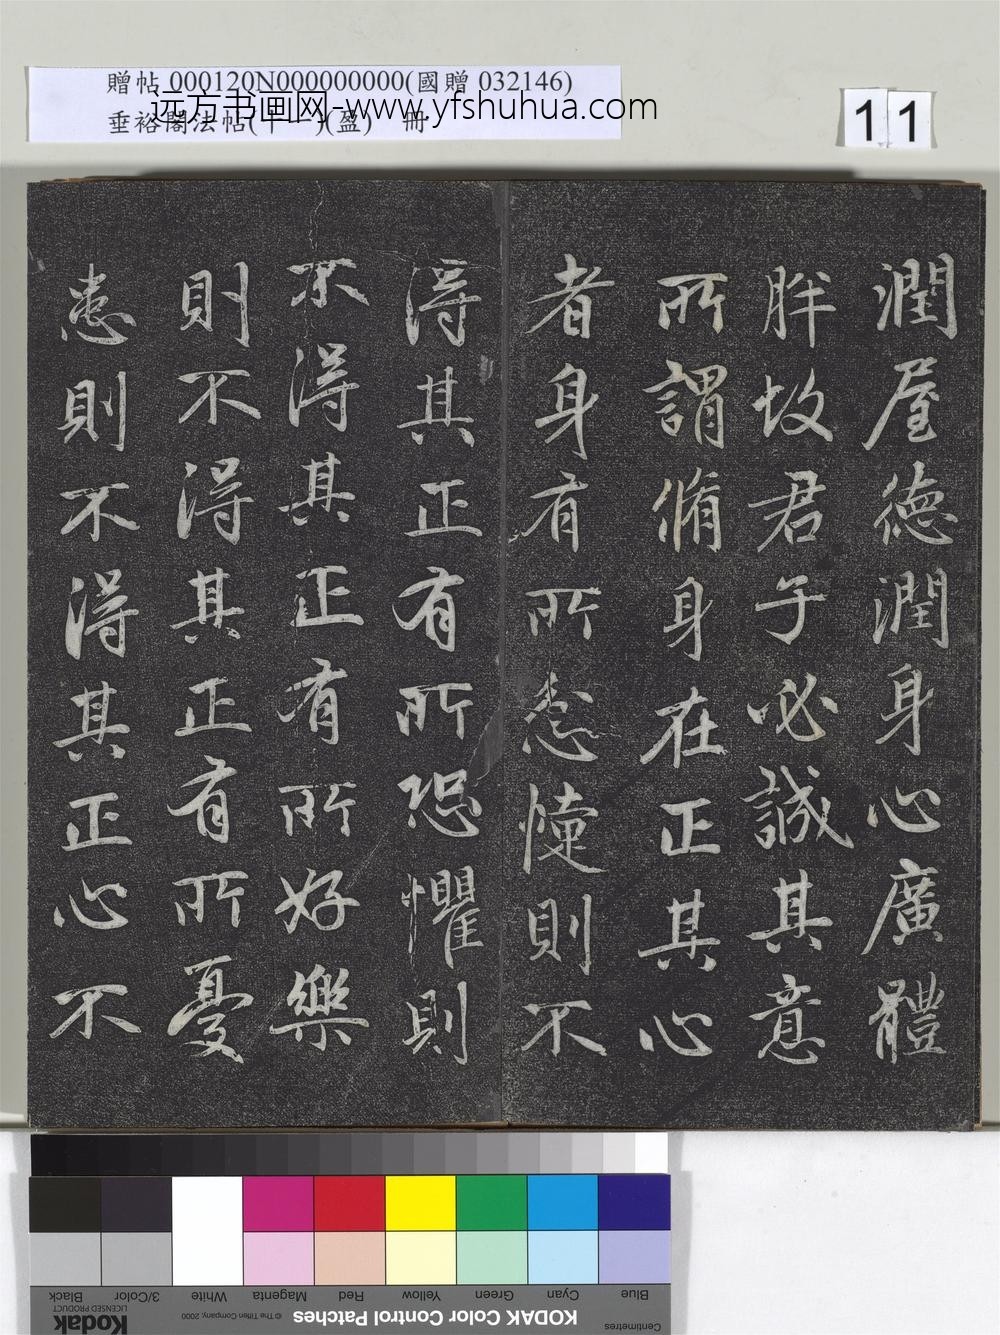 贈帖 000120N000000000(國贈 032146)
垂裕閣法帖(十一)(盈) 冊
远方书画网-www.yfshuhua.com
11
潤屋德潤身心廣體
胖故君子必誠其意
所謂脩身在正其心
者身有所忿懥則不
得其正有所恐懼則
不得其正有所好樂
則不得其正有所憂
患則不得其正心不
Blue Cyan Green Yellow Red Magenta White 3/Color Black
Centimetres KODAK Color Control Patches © The Tiffen Company, 2000 Kodak
LICENSED PRODUCT